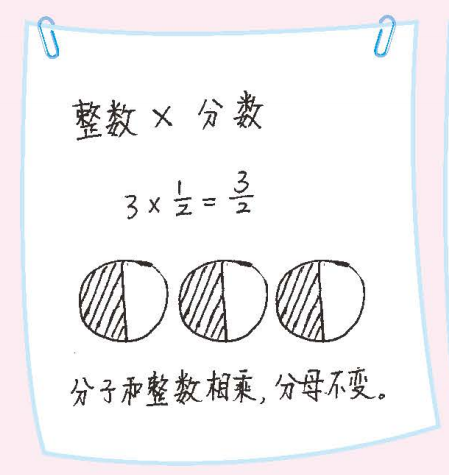 整数 × 分数
3 × 1/2 = 3/2
分子和整数相乘,分母不变。